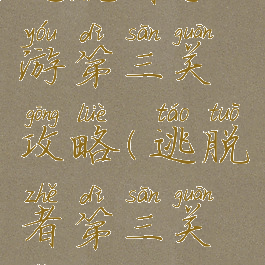 yóu dì sān guān
游第三关
gōng lüè táo tuō
攻略(逃脱
zhě dì sān guān
者第三关